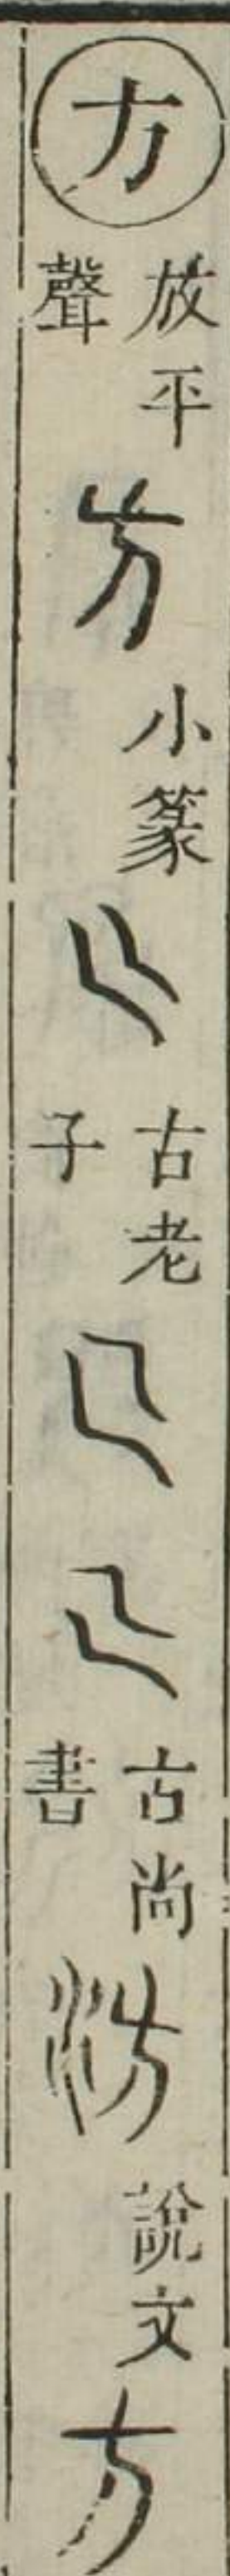 方 放平聲 方 小篆 古老子 古尚書 汸 說文 方